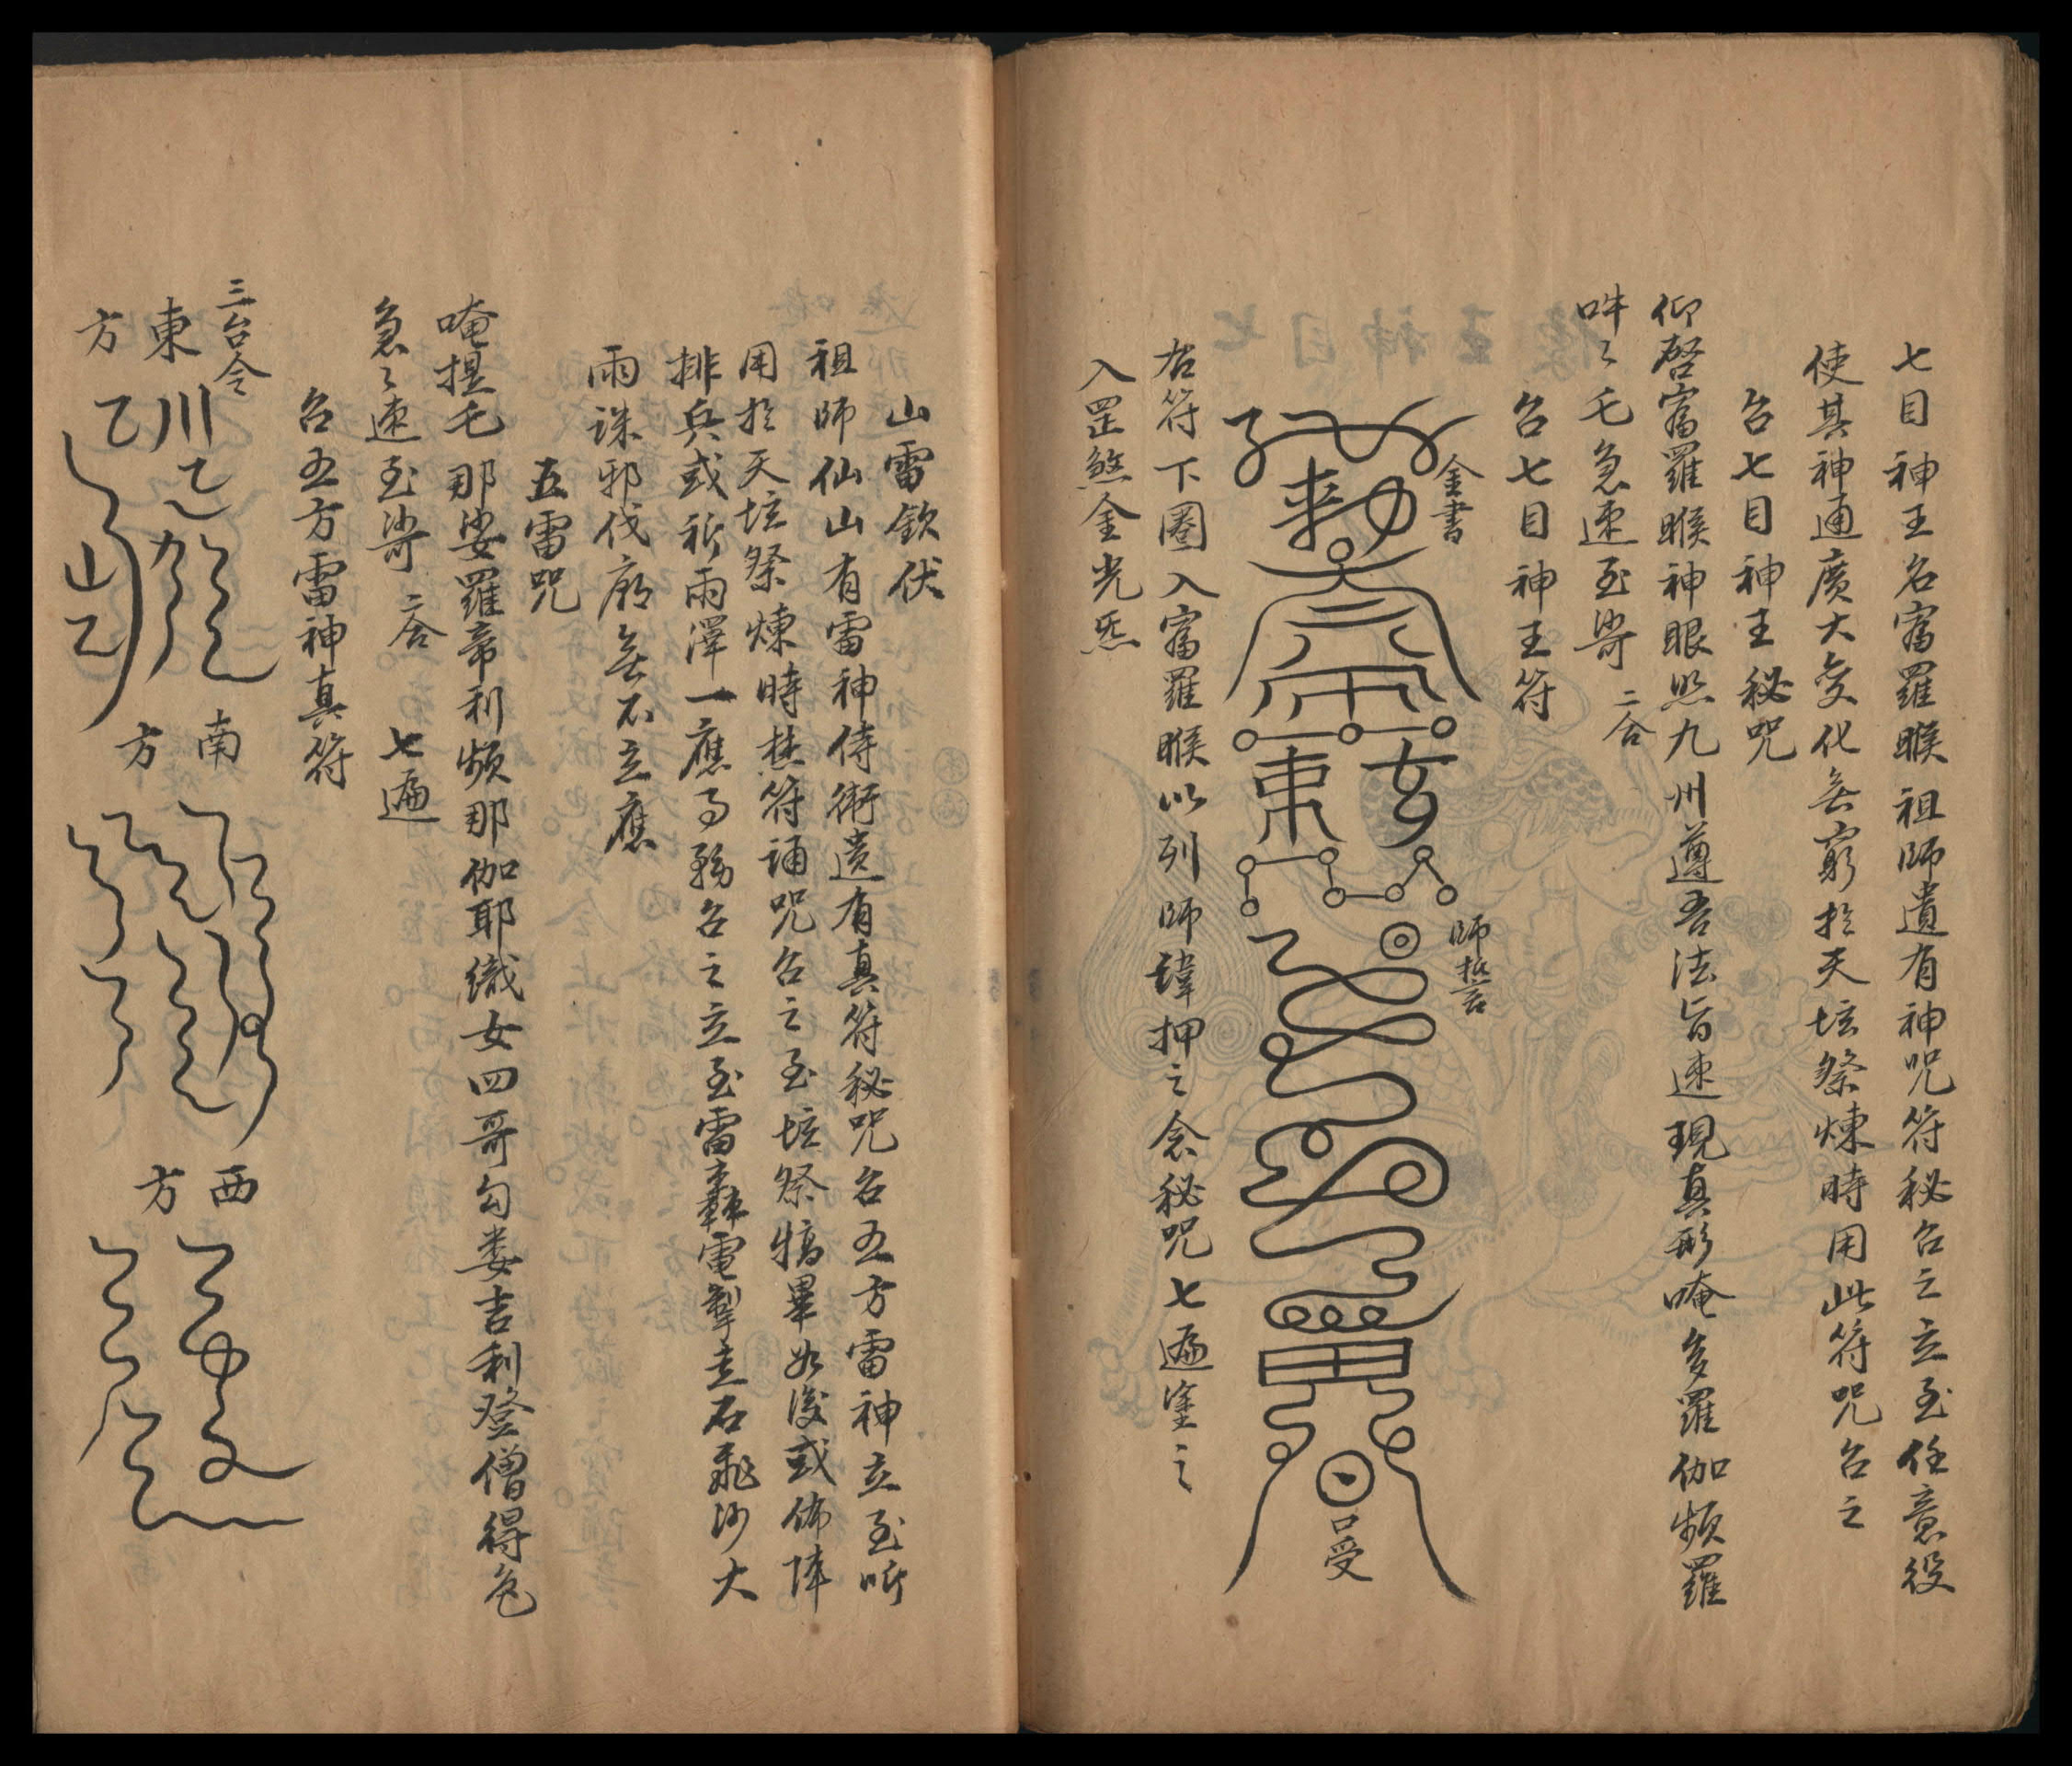 七目神王名富羅睺祖師遺有神咒符秘召之立至任意役
使其神通廣大变化无窮於天壇祭煉時用此符咒召之
召七目神王秘咒
仰啓富羅睺神眼照九州遵吾法旨速現真形唵多羅伽頻羅
吽々乇急速至 二合
召七目神王符
金書
勅
玄
東
師誓
口受
右符下圈入富羅睺以列師諱押之念秘咒七遍塗之
入罡煞金光炁
山雷欽伏
祖師仙山有雷神侍衛遺有真符秘咒召五方雷神立至听
用於天壇祭煉時焚符誦咒召之至壇祭犒畢如後或佈陣
排兵或祈雨澤一應事務召之立至雷轟電掣走石飛沙大
雨誅邪伐廟无不立應
五雷咒
唵捏乇那娑羅帝利頻那伽耶織女四哥勾娄吉利登僧得
急々速至 二合 七遍
召五方雷神真符
三台令
東方
南方
西方